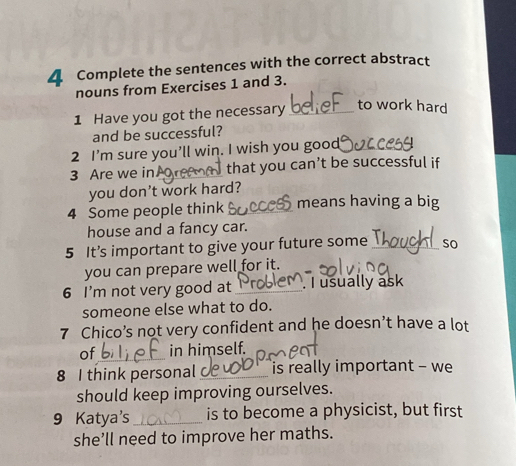 4 Complete the sentences with the correct abstract
nouns from Exercises 1 and 3.
1 Have you got the necessary belief to work hard
and be successful?
2 I'm sure you'll win. I wish you good Success!
3 Are we in Agreement that you can't be successful if
you don't work hard?
4 Some people think Success means having a big
house and a fancy car.
5 It's important to give your future some Thought so
you can prepare well for it.
6 I'm not very good at Problem-solving. I usually ask
someone else what to do.
7 Chico's not very confident and he doesn't have a lot
of bilief in himself.
8 I think personal devolopment is really important – we
should keep improving ourselves.
9 Katya's is to become a physicist, but first
she'll need to improve her maths.